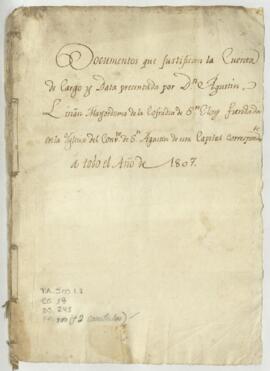 Documentos que justifican la Cuenta
de Cargo y Data presentada por Dn. Agustin
Liñán Mayordomo de la Cofradia de Sn. Eloy fundada
en la Yglesia del Convto. de Sn. Agustin de esta Capital correspte.
a todo el Año de 1807.
CO. 18
DO. 245